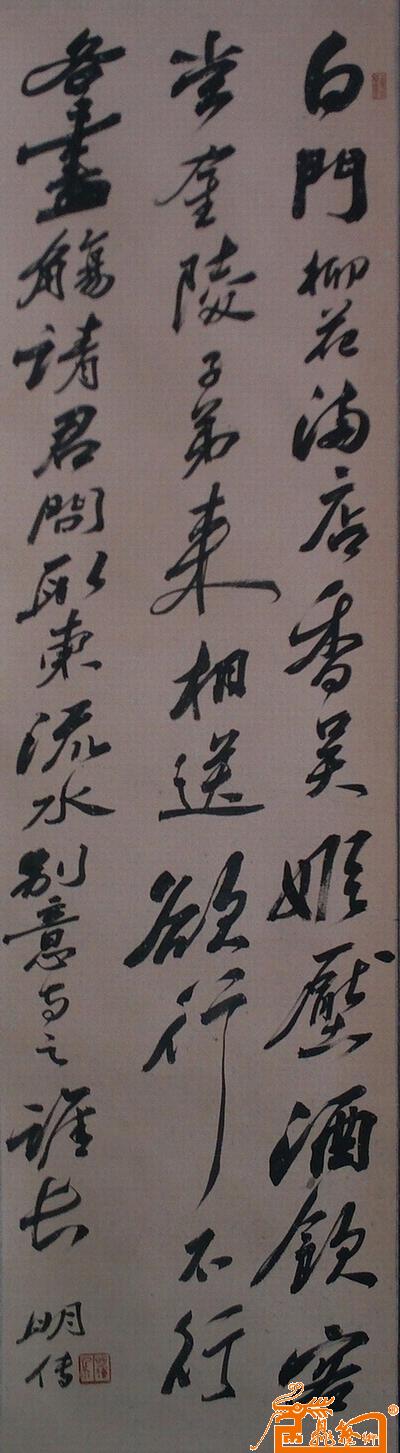 白門柳花滿店香吳姬壓酒飲客
嘗金陵子弟来相送欲行不行
各盡觴請君問取東流水別意与之誰長
明传